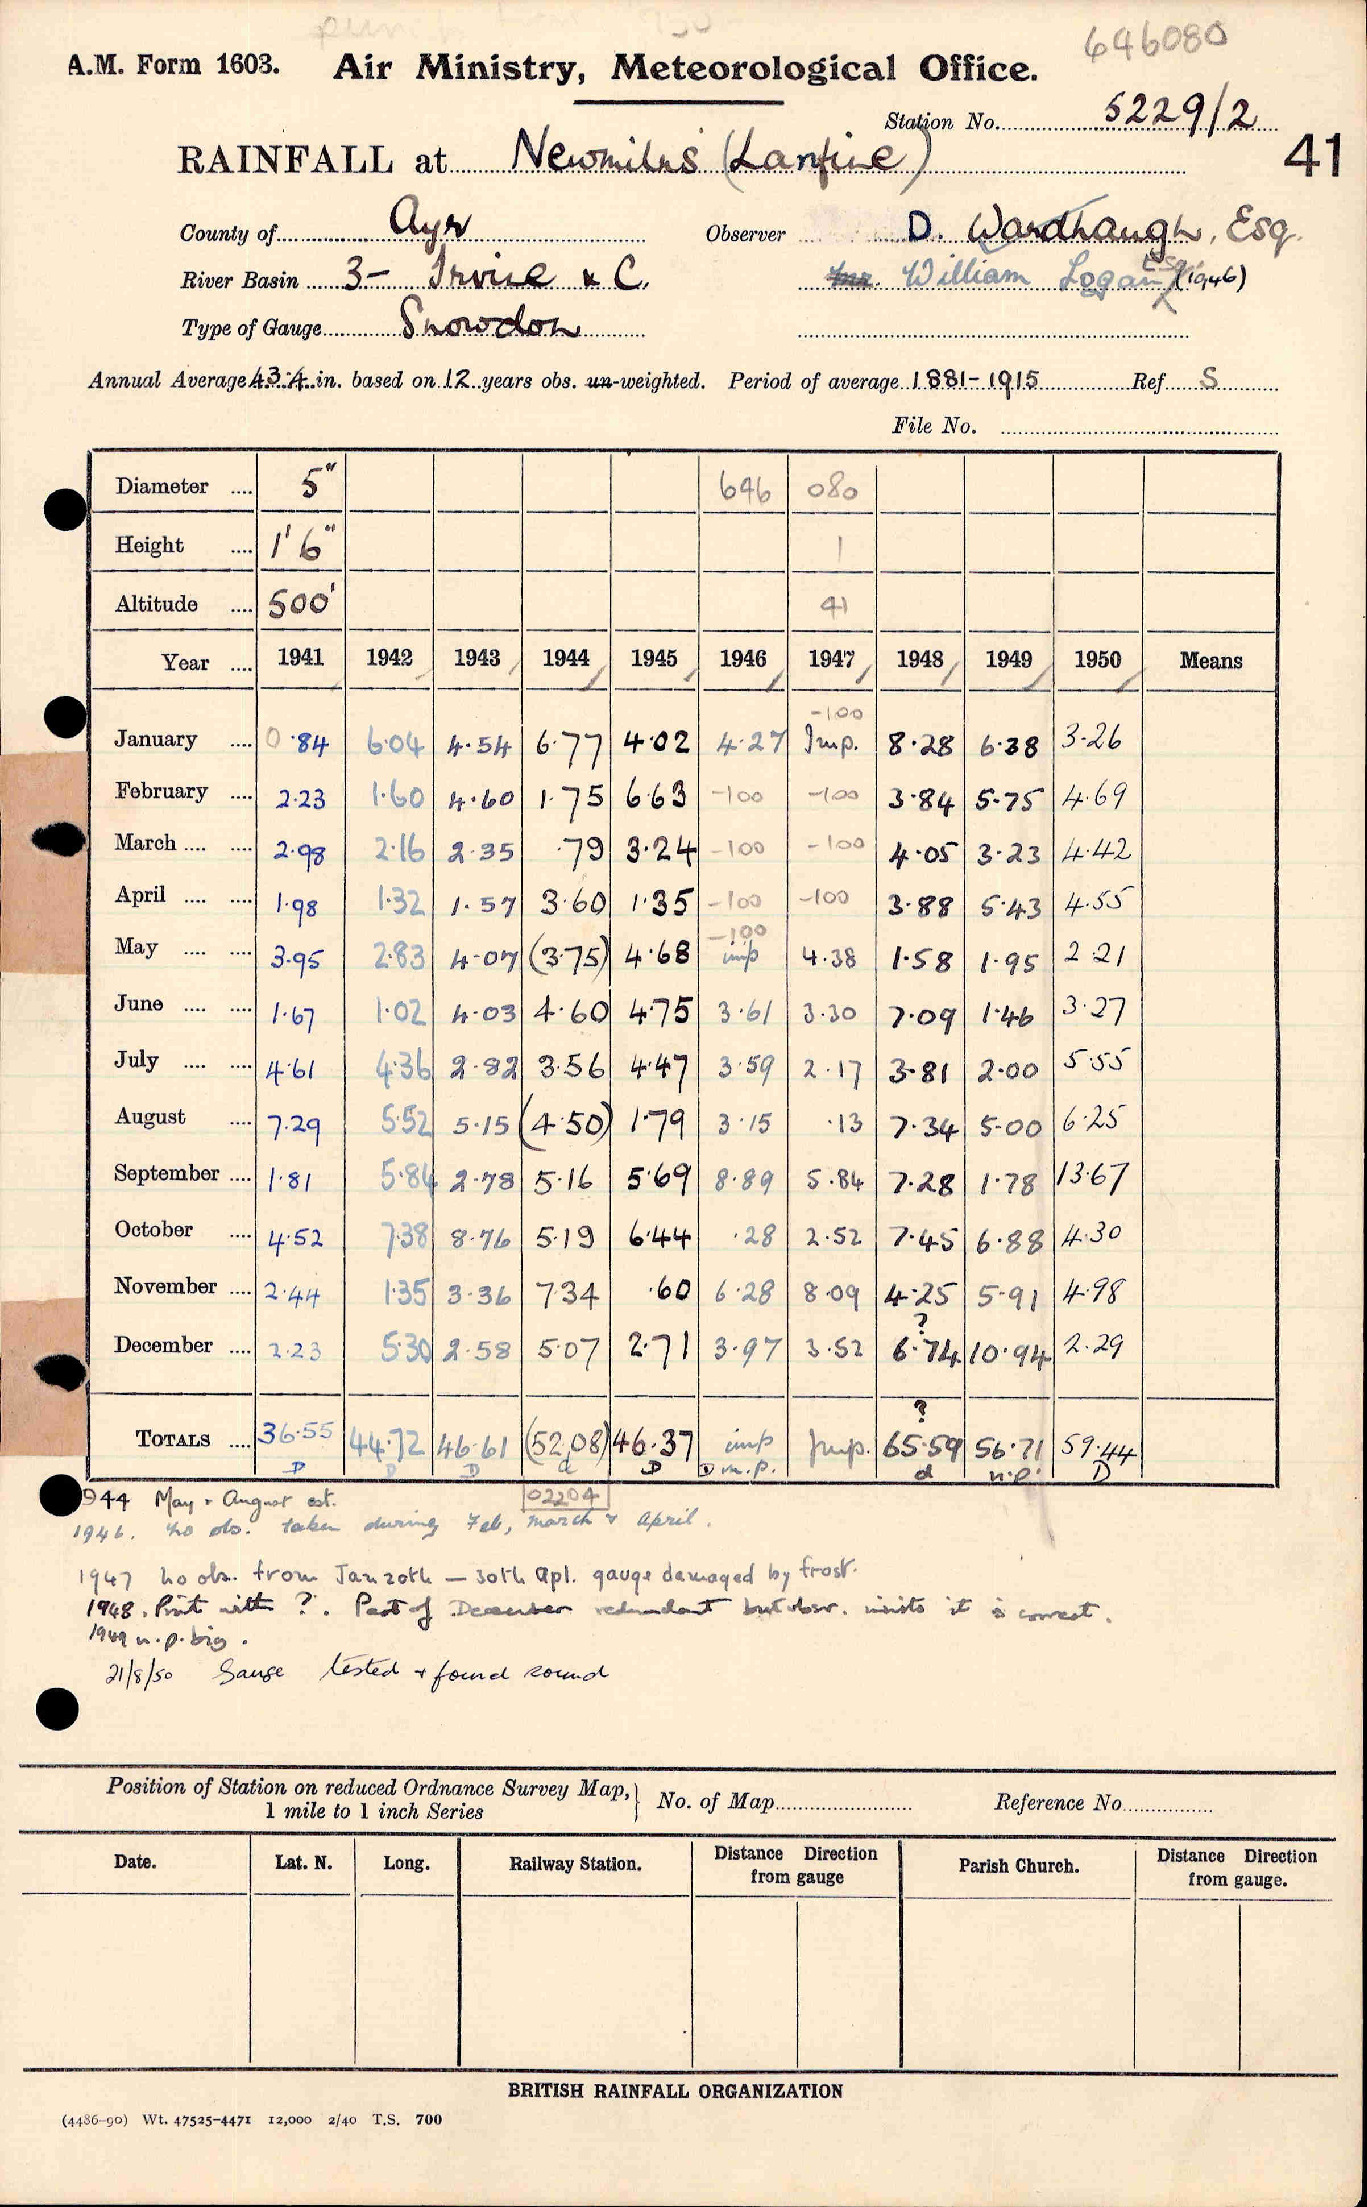 646080
A.M. Form 1603. Air Ministry, Meteorological Office.
Station No. 5229/2
41
RAINFALL at Newmilns (Lanfine)
County of Ayr Observer D. Wardhaugh, Esq.
River Basin 3- Irvine & C. Mr. William Logan Esq. (1946)
Type of Gauge Snowdon
Annual Average 43.4 in. based on 12 years obs. un-weighted. Period of average 1881-1915 Ref. S
File No.
Diameter .... 5" 646 080
Height .... 1' 6" 1
Altitude .... 500' 41
Year .... 1941 1942 1943 1944 1945 1946 1947 1948 1949 1950 Means
-100
January .... 0.84 6.04 4.54 6.77 4.02 4.27 Imp. 8.28 6.38 3.26
February .... 2.23 1.60 4.60 1.75 6.63 -100 -100 3.84 5.75 4.69
March .... .... 2.98 2.16 2.35 .79 3.24 -100 -100 4.05 3.23 4.42
April .... .... 1.98 1.32 1.57 3.60 1.35 -100 -100 3.88 5.43 4.55
-100
May .... .... 3.95 2.83 4.07 (3.75) 4.68 imp 4.38 1.58 1.95 2.21
June .... .... 1.67 1.02 4.03 4.60 4.75 3.61 3.30 7.09 1.46 3.27
July .... .... 4.61 4.36 2.82 3.56 4.47 3.59 2.17 3.81 2.00 5.55
August .... 7.29 5.52 5.15 (4.50) 1.79 3.15 .13 7.34 5.00 6.25
September .... 1.81 5.84 2.78 5.16 5.69 8.89 5.84 7.28 1.78 13.67
October .... 4.52 7.38 8.76 5.19 6.44 .28 2.52 7.45 6.88 4.30
November .... 2.44 1.35 3.36 7.34 .60 6.28 8.09 4.25 5.91 4.98
?
December .... 2.23 5.30 2.58 5.07 2.71 3.97 3.52 6.74 10.94 2.29
?
TOTALS .... 36.55 44.72 46.61 (52.08) 46.37 imp Imp. 65.59 56.71 59.44
D D D d D n.p. d n.p. D
1944 May & August est. 02204
1946. no obs. taken during Feb, March & April.
1947 no obs. from Jan 20th — 30th Apl. gauge damaged by frost.
1948. Print with ?. Part of December redundant but obsr. insists it is correct.
1949 n.p. big.
21/8/50 Gauge tested & found sound
Position of Station on reduced Ordnance Survey Map, } No. of Map Reference No.
1 mile to 1 inch Series
Date. Lat. N. Long. Railway Station. Distance Direction from gauge Parish Church. Distance Direction from gauge.
BRITISH RAINFALL ORGANIZATION
(4486-90) Wt. 47525-4471 12,000 2/40 T.S. 700